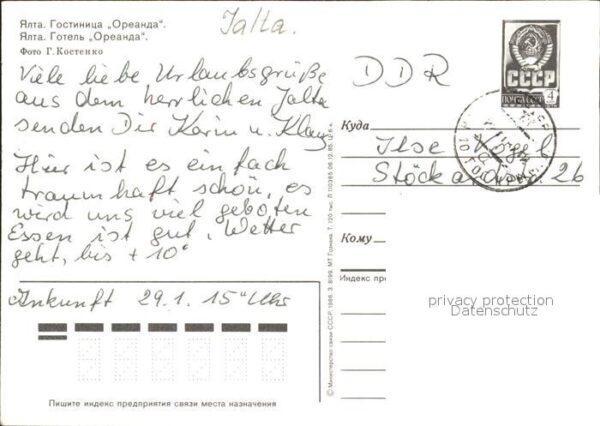 Ялта. Гостиница „Ореанда“.
Ялта. Готель „Ореанда“.
Фото Г. Костенко
Jalta.
Viele liebe Urlaubsgrüße
aus dem herrlichen Jalta
senden Dir Karin u. Klaus
Hier ist es einfach
traumhaft schön, es
wird uns viel geboten
Essen ist gut, Wetter
geht, bis + 10°
Ankunft 29.1. 15°° Uhr
Пишите индекс предприятия связи места назначения
© Министерство связи СССР. 1986. З. 8199. МТ Гознака. Т. 120 тыс. Л 100385. 06.12.85. Ц. 6 к.
DDR
СССР
ПОЧТА СССР 4
Куда
Ilse
Stöck 26
Кому
Индекс пр
privacy protection
Datenschutz